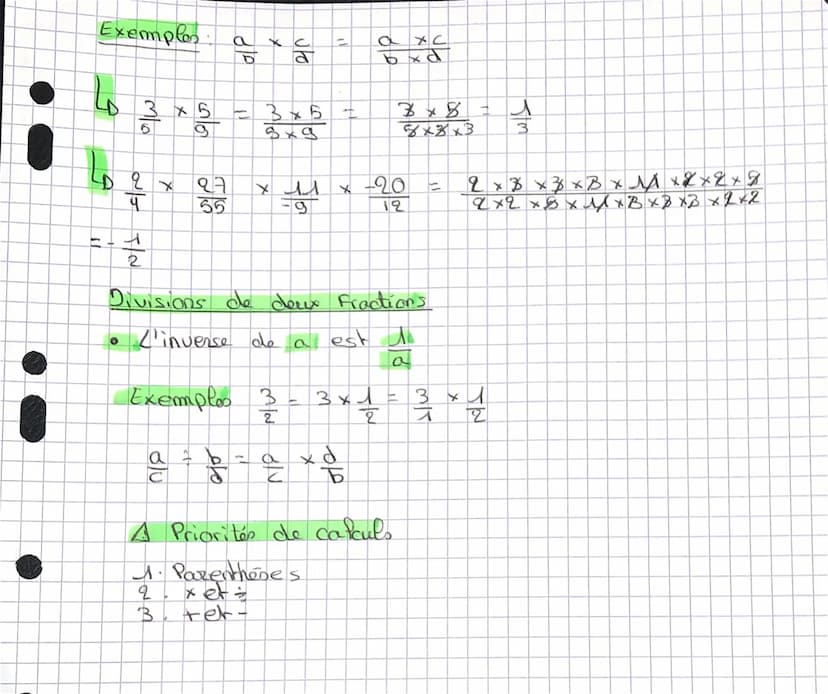 Exemples: a/b × c/d = a × c / b × d
↳ 3/5 × 5/9 = 3 × 5 / 9 × 9 = 3 × 5 / 5 × 3 × 3 = 1/3
↳ 2/4 × 27/55 × 11/-9 × -20/12 =
= - 1/2
Divisions de deux Fractions
• L'inverse de a est 1/a
Exemples 3/2 = 3 × 1/2 = 3/1 × 1/2
a/c ÷ b/d = a/c × d/b
⚠ Priorités de calculs
1. Parenthèses
2. × et ÷
3. + et -